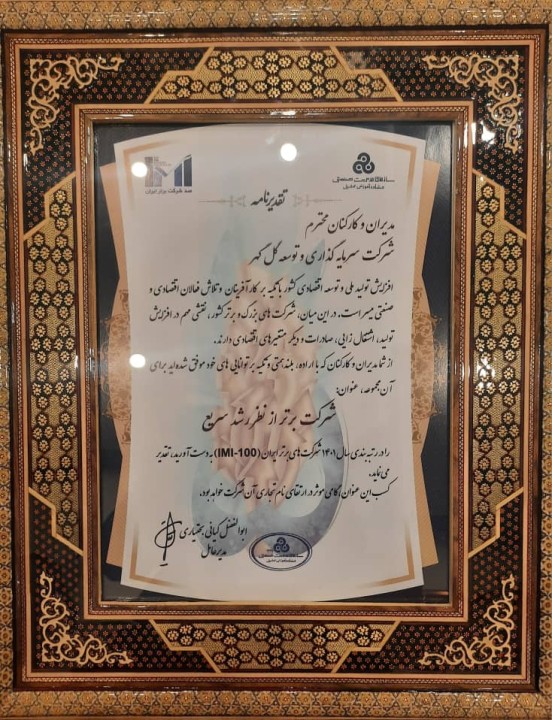 سازمان مدیریت صنعتی
صد شرکت برتر ایران
تقدیرنامه
مدیران و کارکنان محترم
شرکت سرمایه گذاری و توسعه گل گهر
افزایش تولید ملی و توسعه اقتصادی کشور با تکیه بر کارآفرینان و تلاش فعالان اقتصادی و
صنعتی میسر است. در این میان، شرکت های بزرگ و برتر کشور، نقشی مهم در افزایش
تولید، اشتغال زایی، صادرات و دیگر متغیرهای اقتصادی دارند.
از شما مدیران و کارکنان که با اراده، بلند همتی و تکیه بر توانایی های خود موفق شده اید برای
آن مجموعه، عنوان:
شرکت برتر از نظر رشد سریع
را در رتبه بندی سال ۱۴۰۱ شرکت های برتر ایران (IMI-100) به دست آورید، تقدیر
می نماید.
کسب این عنوان، گامی موثر در ارتقای نام تجاری آن شرکت خواهد بود.
ابوالفضل کیانی بختیاری
مدیرعامل